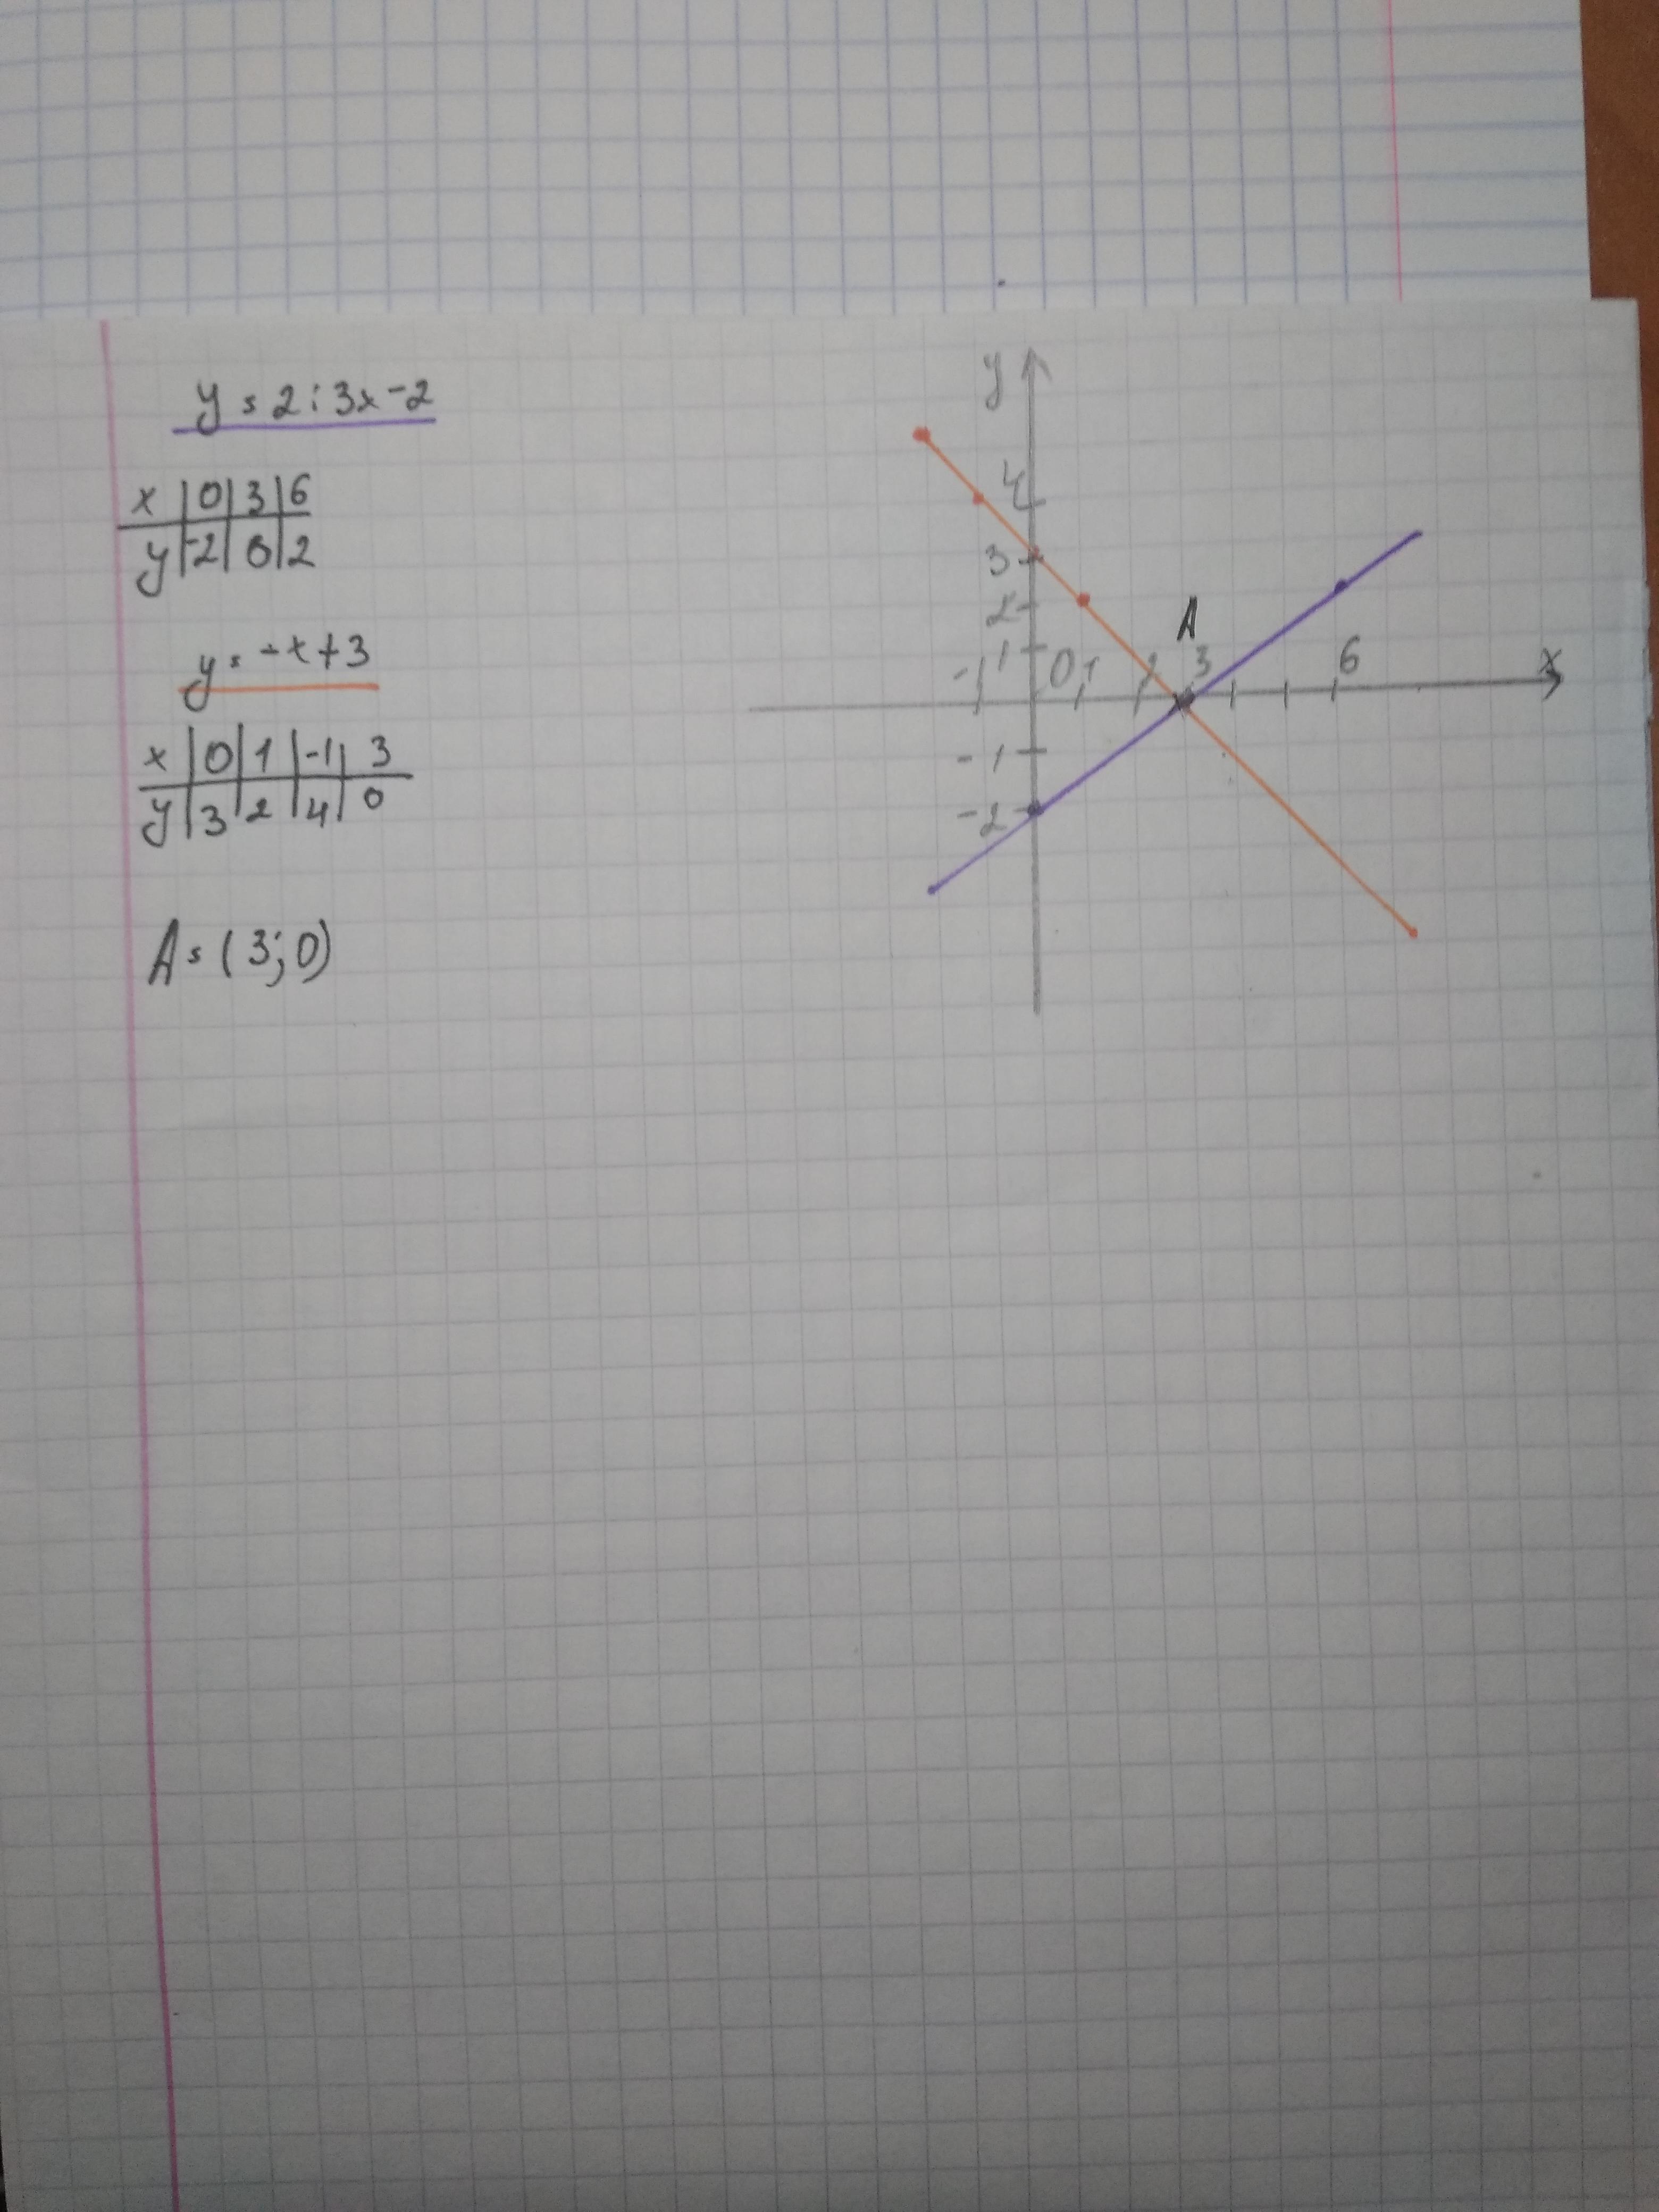 y = 2:3x-2
x | 0 | 3 | 6
y | -2 | 0 | 2
y = -x+3
x | 0 | 1 | -1 | 3
y | 3 | 2 | 4 | 0
A = (3;0)
y
4
3
2
1
-1 0 1 2 3 6 x
A
-1
-2